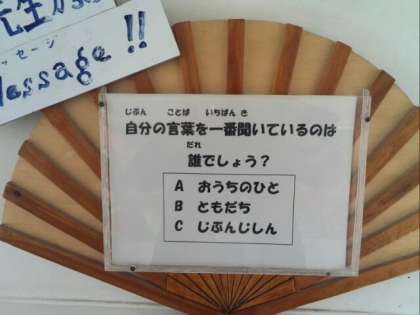 先生からの
メッセージ
Message!!
じぶん ことば いちばん き
自分の言葉を一番聞いているのは
だれ
誰でしょう？
A おうちのひと
B ともだち
C じぶんじしん